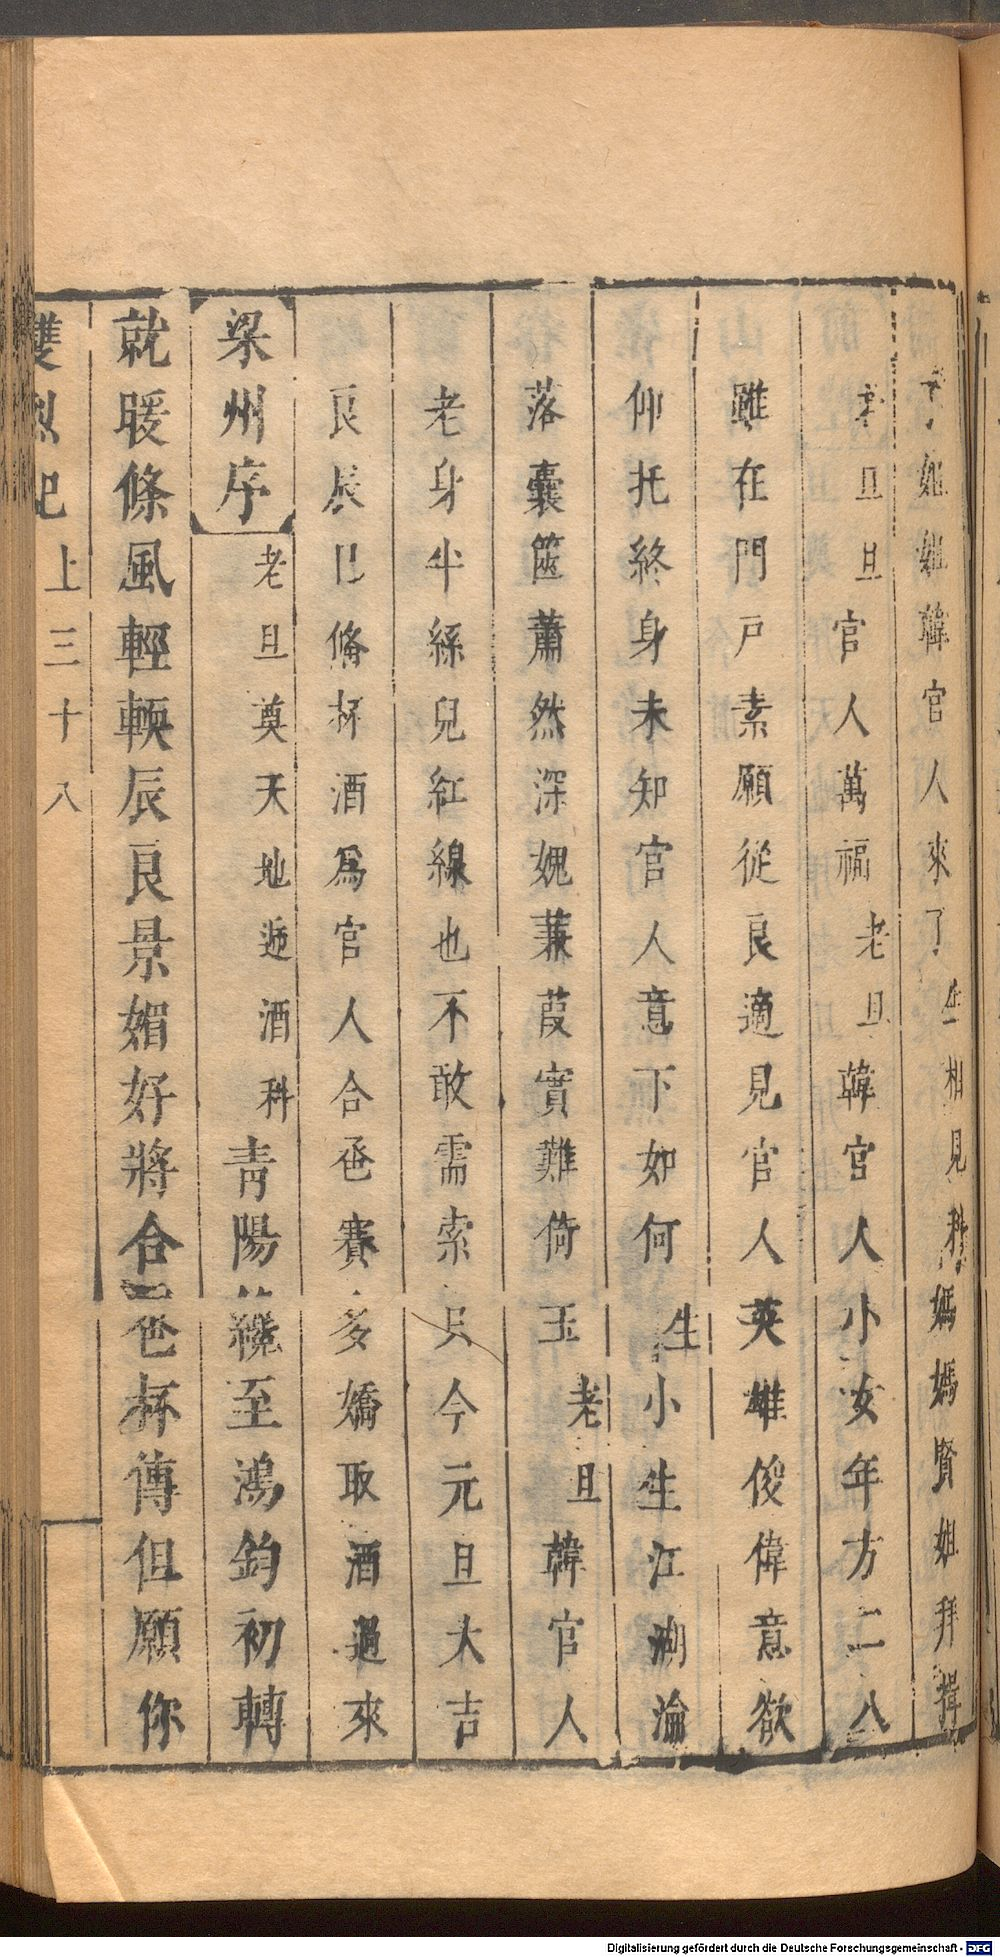 姐姐韓官人來了生相見科媽媽賢姐拜揖
旦旦官人萬福老旦韓官人小女年方二八
雖在門戶素願從良適見官人英雄俊偉意欲
仰托終身未知官人意下如何生小生江湖淪
落囊篋蕭然深媿蒹葭實難倚玉老旦韓官人
老身半絲兒紅線也不敢需索只今元旦大吉
良辰已俻杯酒為官人合卺賽多嬌取酒過來
梁州序老旦奠天地遞酒科青陽纔至鴻鈞初轉
就暖條風輕輭辰良景媚好將合卺杯傳但願你
雙烈記上三十八
Digitalisierung gefördert durch die Deutsche Forschungsgemeinschaft - DFG